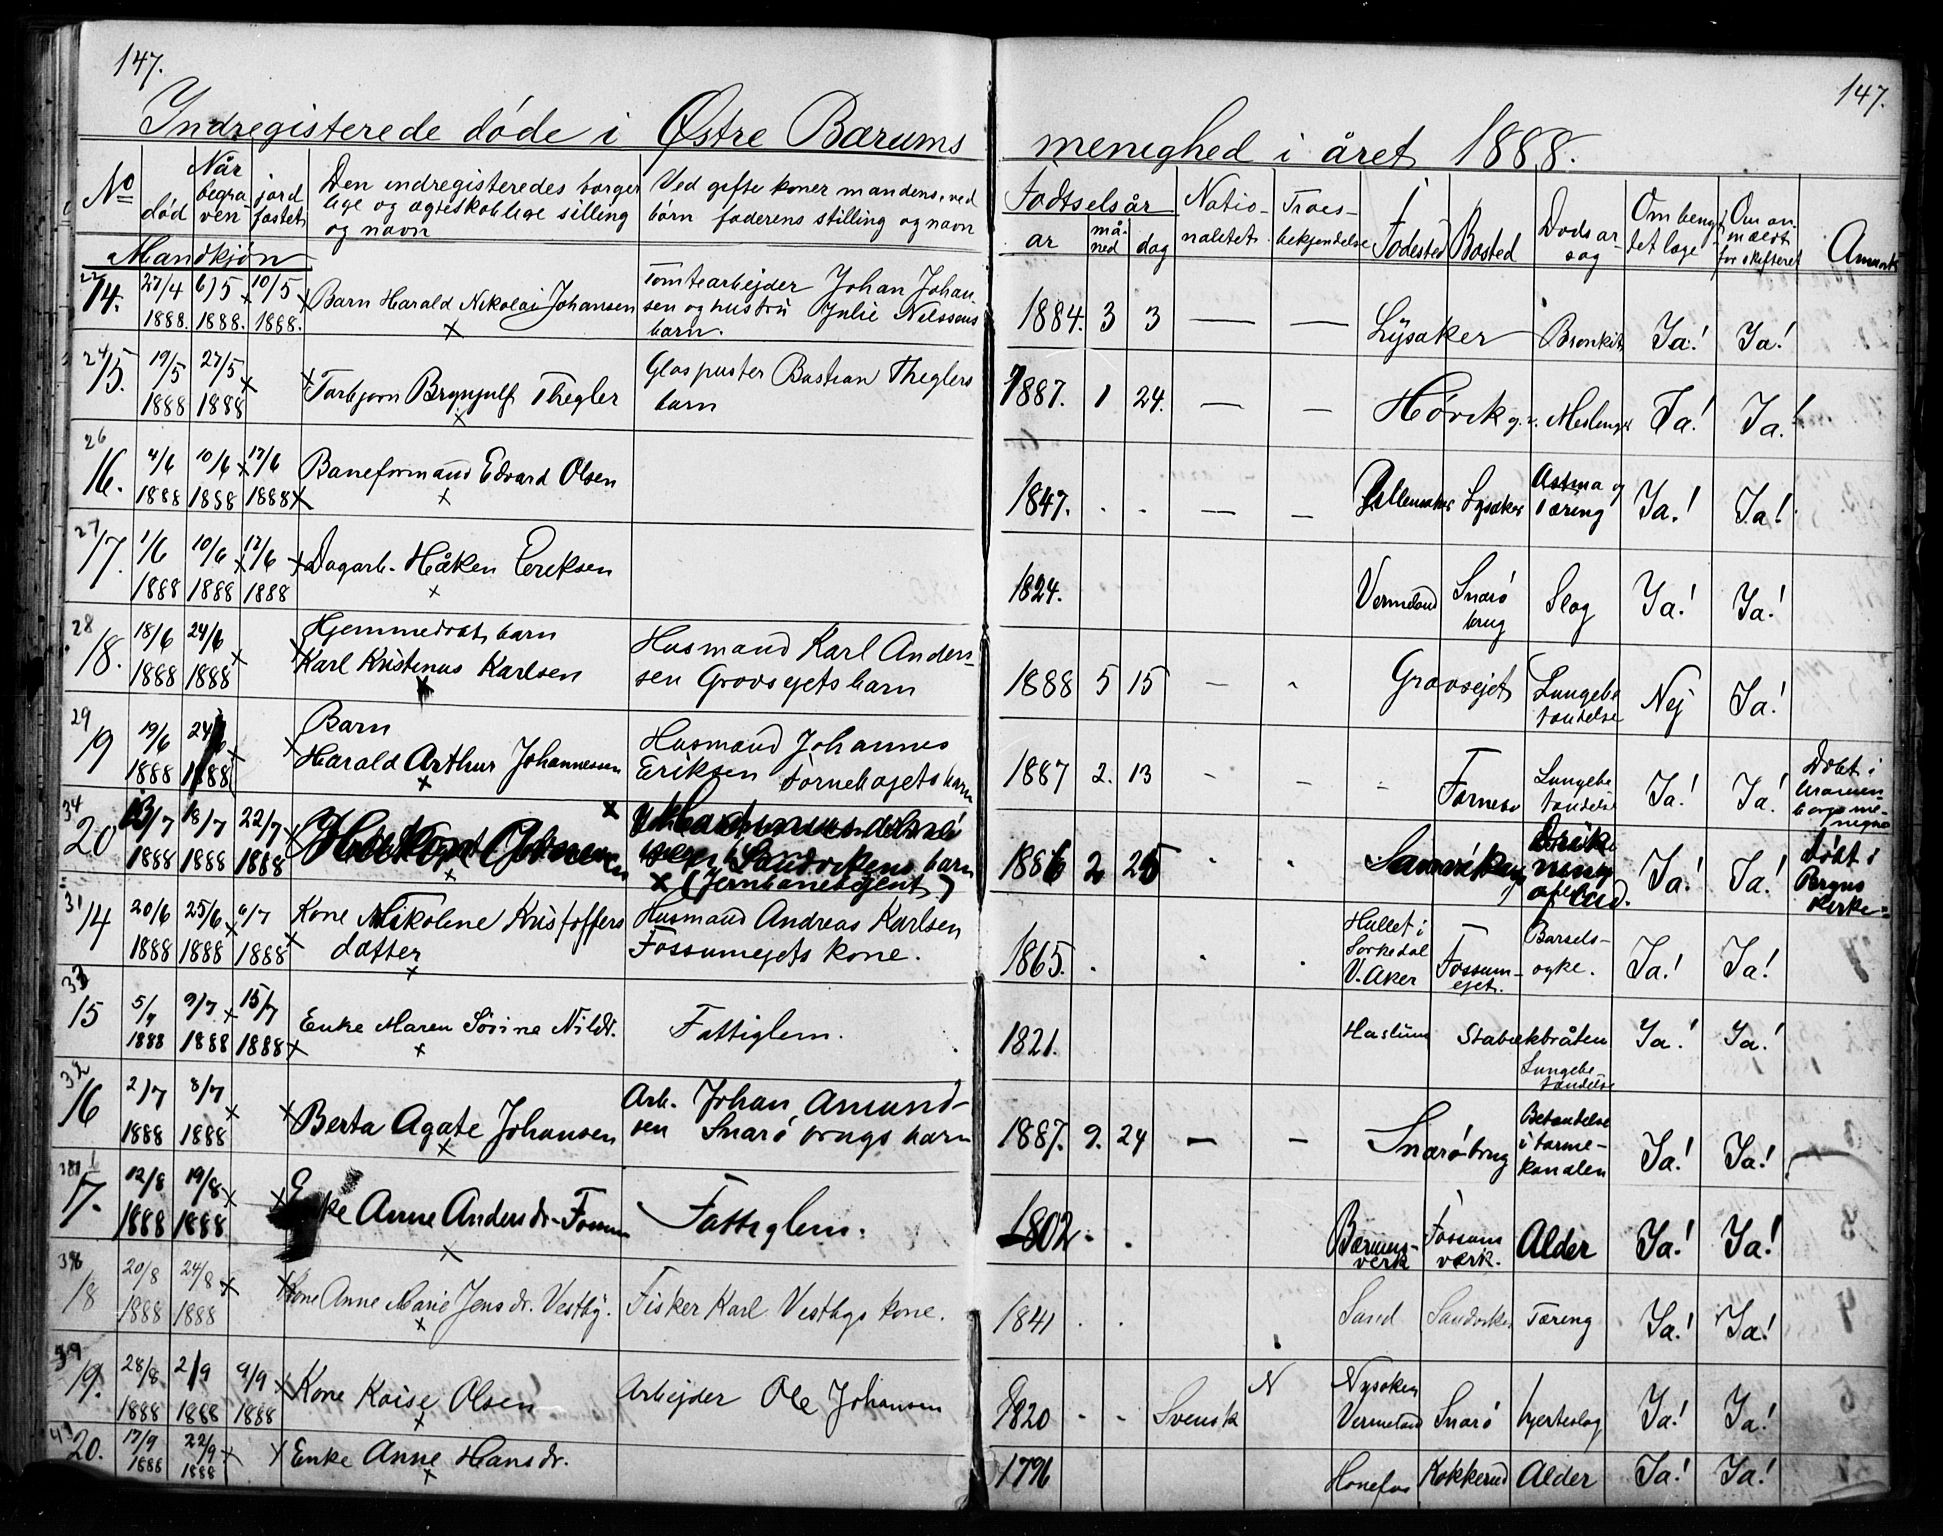 147.
147.
Indregisterede døde i Østre Bærums menighed i året 1888.
No
Når
død
begra
ven
jord
fæstet
Den indregisteredes borger
lige og ægteskablige stilling
og navn
Ved gifte koner mandens, ved
børn faderens stilling og navn
Fødselsår
år
må-
ned
dag
Natio-
nalitet
Troes-
bekjendelse
Fødested
Bosted
Dødsår-
sag
Om benyt
tet læge
Om an
mældt
for skifteret
Anmærk
Mandkjøn
14. 27/4 1888. 6/5 1888. 10/5 1888.
Barn Harald Nikolai Johansen
Tomtearbejder Johan Johan-
sen og hustru Julie Nilssens
barn.
1884. 3 3 — — Lysaker Bronkit Ja! Ja!
24/15. 19/5 1888 27/5 1888
Torbjørn Brynjulf Thegler
Glaspuster Bastian Theglers
barn
1887. 1 24. — — Høvik Meslinger Ja! Ja!
26/16. 4/6 1888 10/6 1888 17/6 1888
Baneformand Edvard Olsen
1847. . . — — Lysaker Astma og
Tæring Ja! Ja!
27/17. 1/6 1888 10/6 1888 17/6 1888
Dagarb. Håken Eriksen
1824. Vermeland Snarø
brug Slag Ja! Ja!
28/18. 18/6 1888 24/6 1888
Hjemmedøbt barn
Karl Kristinus Karlsen
Husmand Karl Anders-
sen Gravsejets barn
1888 5 15 — Gravsejet Lungebe
tændelse Nej Ja!
29/19 19/6 1888 24/6 1888
Barn
Harald Arthur Johannessen
Husmand Johannes
Eriksen Fornebøejets barn
1887 2. 13 Fornebo Lungebe
tændelse Ja! Ja! Døbt i
34/20 13/7 1888 18/7 1888 22/7 1888
Sandvikens barn
(Jernbanebetjent)
1886 2 25 Sandviken Drukne Ja! Ja! Døbt i
kirke
31/14 20/6 1888 25/6 1888 6/7 1888
Kone Nikoline Kristoffers
datter
Husmand Andreas Karlsen
Fossumejets kone.
1865. . Hullet i
Sørkedal
V. Aker Fossum-
ejet. Barsels-
Ja! Ja!
33/15 5/7 1888 9/7 1888 15/7 1888
Enke Maren Sørine Nilsdr.
Fattiglem.
1821. Haslum Stabækbråten
Lungebe-
tændelse Ja! Ja!
32/16 2/7 1888 8/7 1888
Berta Agate Johansen
Arb. Johan Amund-
sen Snarø brugs barn
1887. 9. 24 — — Snarøbrug Betændelse
i tarme-
kanalen Ja! Ja!
17. 12/8 1888 19/8 1888
Enke Anne Andersdr. Fossum
Fattiglem.
1802 . . Bærums-
verk Fossum
værk. Alder Ja! Ja!
38/18 20/8 1888 24/8 1888
Kone Anne Marie Jensdr. Vestby.
Fisker Karl Vestbys kone.
1841 . . Sand Sandviken Tæring Ja! Ja!
39/19. 28/8 1888 2/9 1888 9/9 1888
Kone Kaise Olsen
Arbejder Ole Johansen
1820 - - Svensk N
Vermeland Snarø hjerteslag Ja! Ja!
43/20. 17/9 1888 22/9 1888
Enke Anne Hansdr.
1796 Hønefos Kokkerud Alder Ja! Ja!